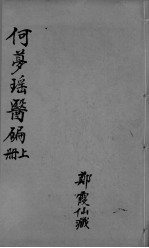 何夢瑤醫碥
上
册
鄭霞仙藏